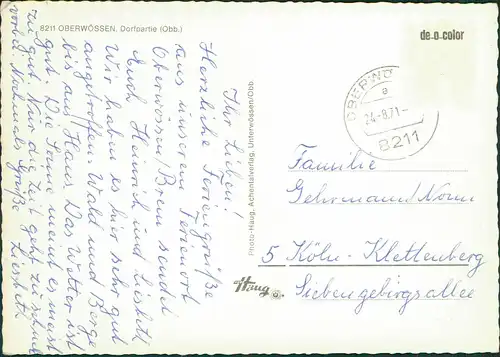 8211 OBERWÖSSEN, Dorfpartie (Obb.)
Ihr Lieben!
Herzliche Feriengrüße
aus unserem Ferienort
Oberwössen/Brem sendet
Euch Heinrich und Liesbeth
Wir haben es hier sehr gut
angetroffen. Wald und Berge
bis aus Haus. Das Wetter ist
gut. Die Sonne meint es meist
zu gut. Nur die Zeit geht zu schnell
vorbei Nochmals Grüße
Liesbeth
Photo-Haug, Achentalverlag, Unterwössen/Obb.
Haug
de-o-color
OBERWÖ
a
24.-8.71.-
8211
Familie
Gehrmann/Nonn
5 Köln-Klettenberg
Siebengebirgsallee